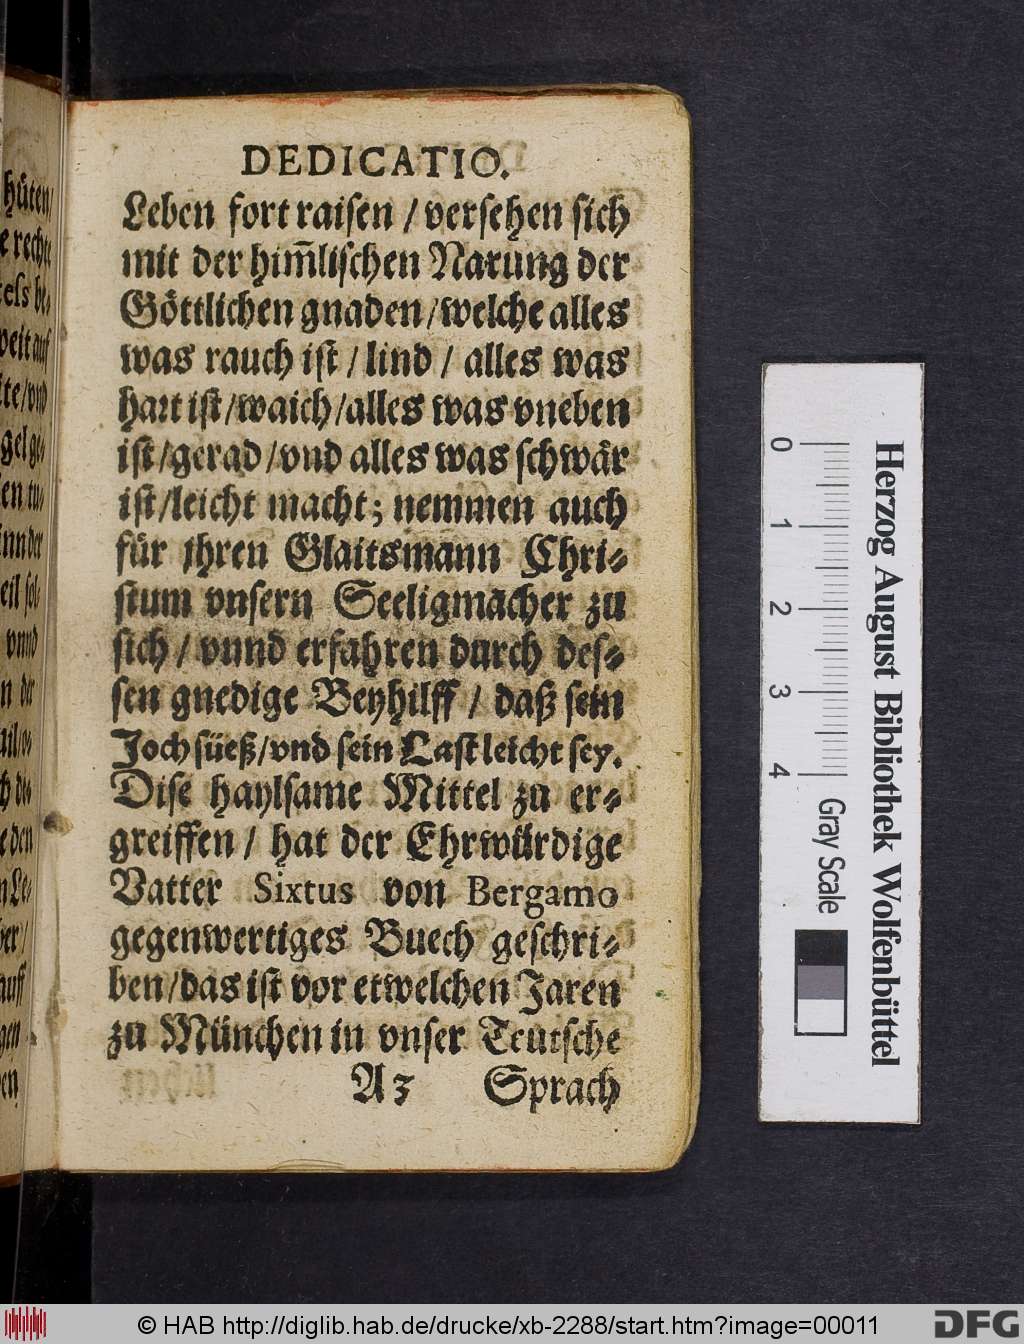 DEDICATIO.
Leben fort raisen / versehen sich
mit der him̃lischen Narung der
Göttlichen gnaden / welche alles
was rauch ist / lind / alles was
hart ist / waich / alles was vneben
ist / gerad / vnd alles was schwär
ist / leicht macht; nemmen auch
für jhren Glaitsmann Chri-
stum vnsern Seeligmacher zu
sich / vnnd erfahren durch des-
sen gnedige Beyhilff / daß sein
Joch süeß / vnd sein Last leicht sey.
Dise haylsame Mittel zu er-
greiffen / hat der Ehrwürdige
Vatter Sixtus von Bergamo
gegenwertiges Buech geschri-
ben / das ist vor etwelchen Jaren
zu München in vnser Teutsche
A3 Sprach
hüten /
e rechte
tels be-
weit auf
te / vnd
gel ge-
en tu-
inn der
eil sol-
vnnd
n der
e den
n Le-
auff
gen
0 1 2 3 4
Gray Scale
Herzog August Bibliothek Wolfenbüttel
© HAB http://diglib.hab.de/drucke/xb-2288/start.htm?image=00011
DFG